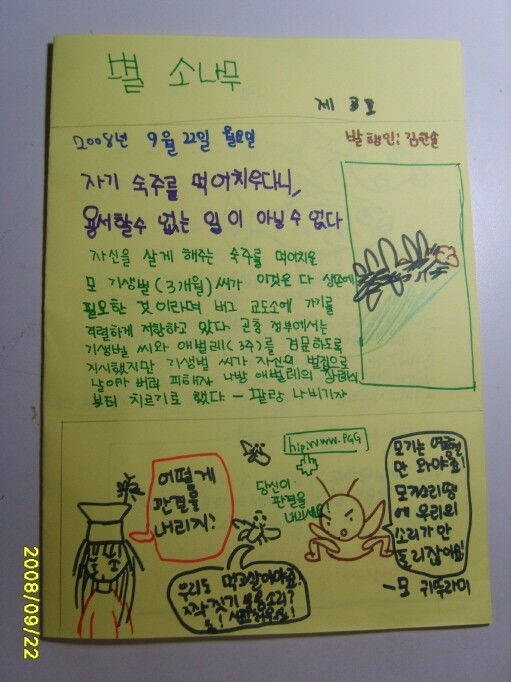 별 소나무
제 3호
2008년 9월 22일 월요일
발행인; 김한솔
자기 숙주를 먹어치우다니,
용서할수 없는 일이 아닐 수 없다
자신을 살게 해주는 숙주를 먹어치운
모 기생벌(3개월)씨가 이것은 다 생존에
필요한 것이라며 버그 교도소에 가기를
격렬하게 저항하고 있다. 곤충 정부에서는
기생벌 씨와 애벌레(3주)를 검문하도록
지시했지만 기생벌 씨가 자신의 벌집으로
날아가 버려 피해자 나방 애벌레의 장례식
부터 치르기로 했다 - 팔랑 나비기자
어떻게
판결을
내리지?
hip;www.PGG
당신이
판결을
내리세요!
우리도 먹고살아야죠!
모기는 여름철
만 와야죠!
에 우리의
소리가 안
들리잖아요!
- 모 귀뚜라미
2008/09/22